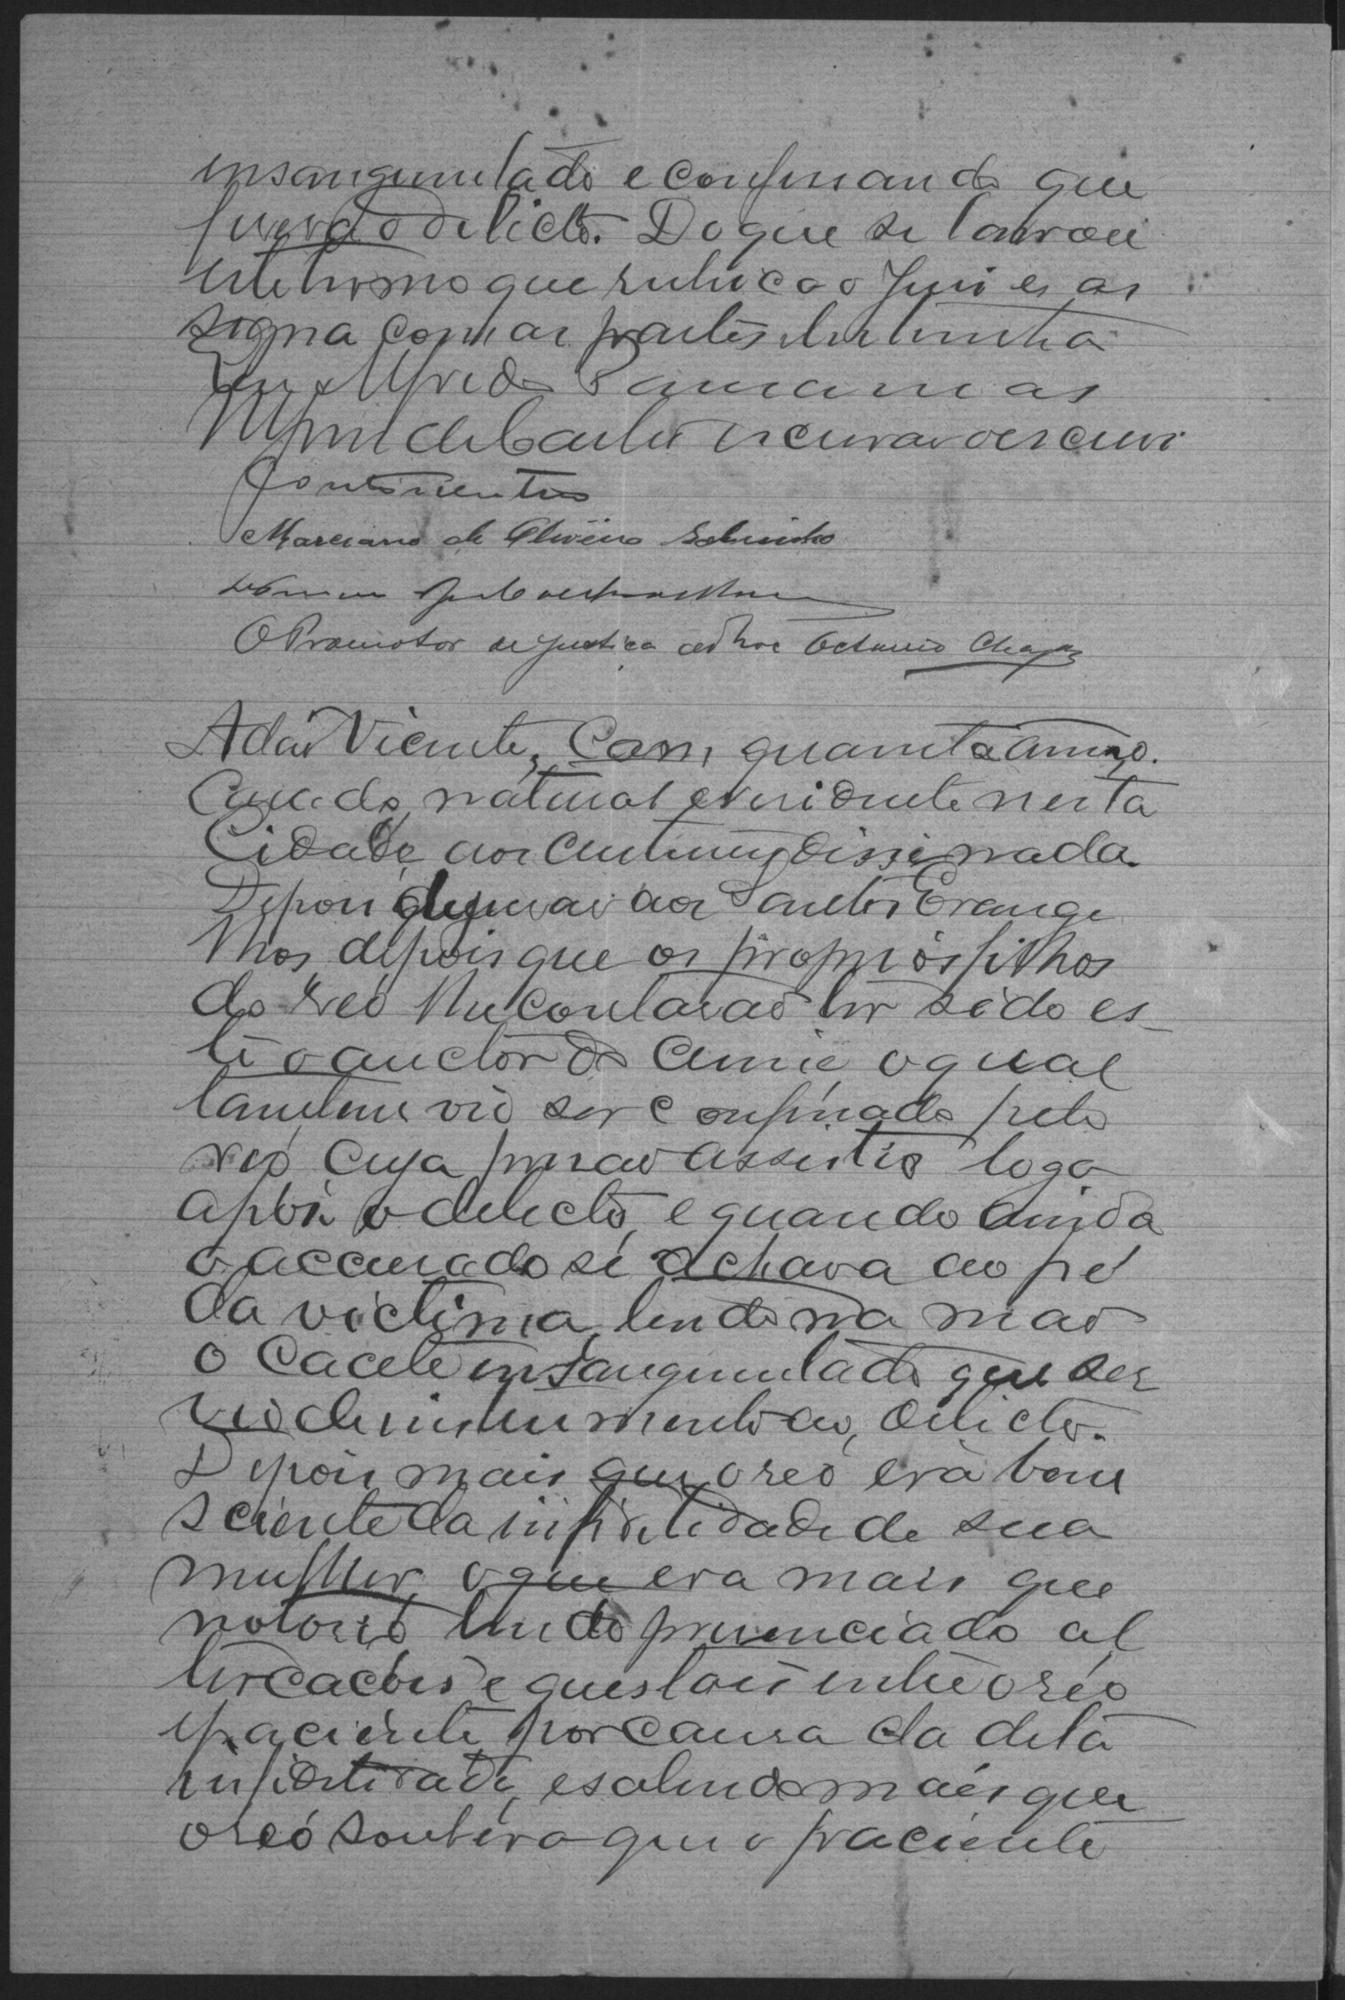 insanguentado e confessando que
fizera o delicto. Do que se lavrou
este termo que rubrica o Juiz e as
signa com as partes e testemunha
Eu Alfredo
de Castro escrivão escrevi
Marciano de Oliveira Sobrinho
O Promotor de justiça ad hoc Octavio Chagas
Adão Vicente, com quarenta annos.
Casado, natural e residente nesta
Cidade, aos costumes disse nada.
Depois de jurar aos Santos Evange
lhos depois que os proprios filhos
do reo lhe contarão ter sido es-
te o auctor do crime, o qual
tambem vio ser confessado pelo
reo cuja prisão assistio logo
após o delicto, e quando ainda
o accusado se achava ao pé
da victima, tendo na mão
o cacete insanguentado que ser
vio de instrumento ao delicto.
Depois mais que o reo era bem
sciente da infidelidade de sua
mulher, o que era mais que
notorio tendo presenciado al
tercações e questões entre o reo
e paciente por causa da dita
infidelidade, e sabendo mais que
o reo soubéra que o paciente